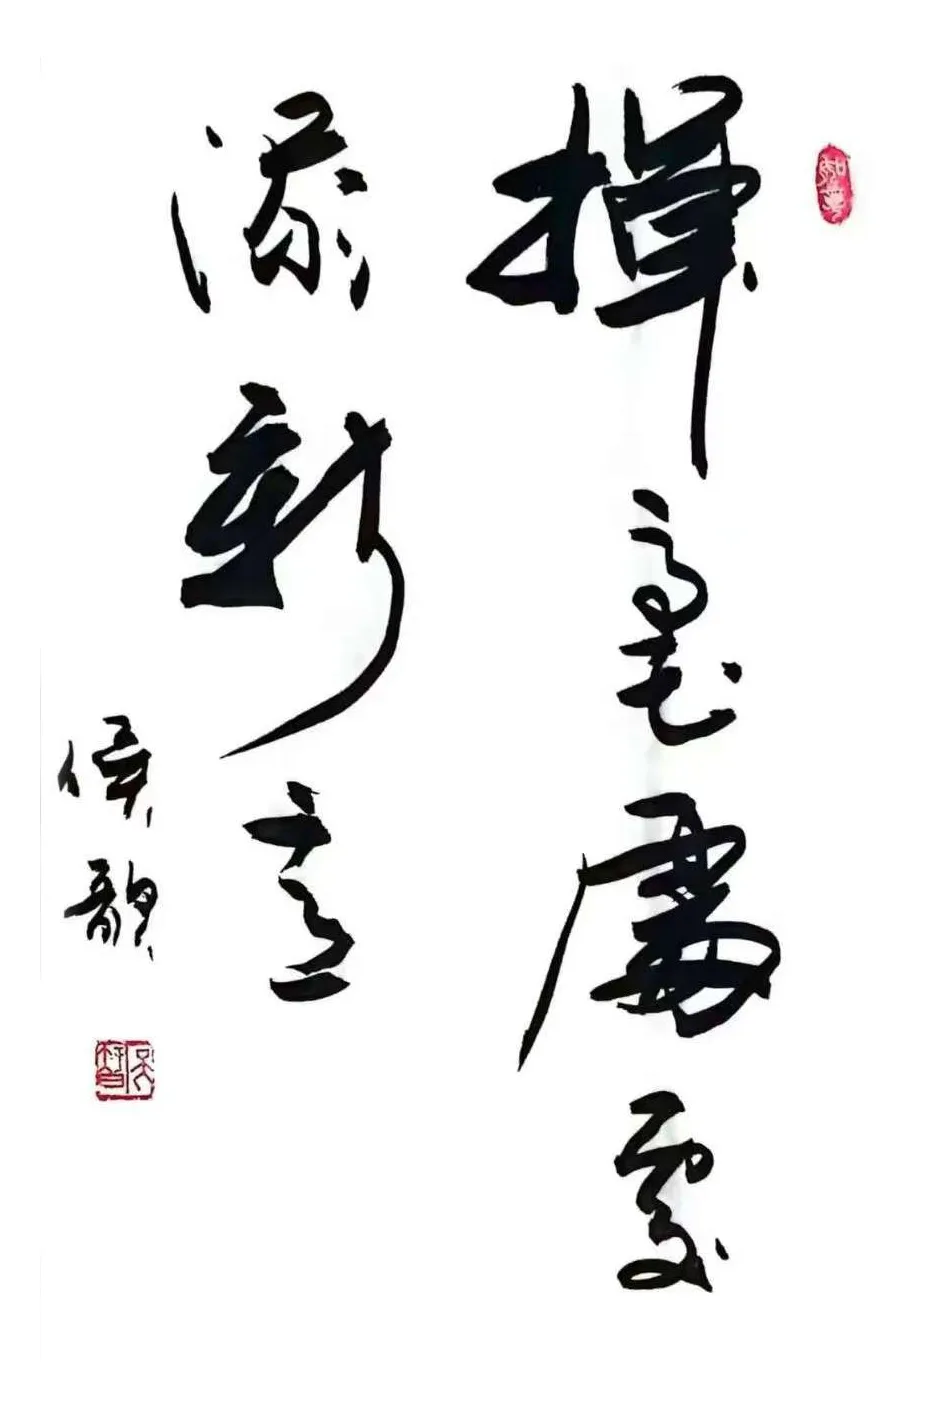 揮毫處處
添新意
侯韵